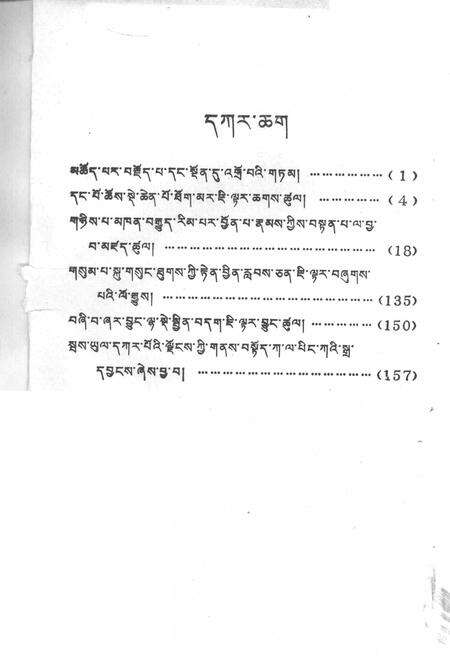 དཀར་ཆག
མཆོད་པར་བརྗོད་པ་དང་སྔོན་དུ་འགྲོ་བའི་གཏམ། ……………… (1)
དང་པོ་ཆོས་སྡེ་ཆེན་པོ་ཐོག་མར་ཇི་ལྟར་ཆགས་ཚུལ། ……………… (4)
གཉིས་པ་མཁན་བརྒྱུད་རིམ་པར་བྱོན་པ་རྣམས་ཀྱིས་བསྟན་པ་ལ་བྱ་
བ་མཛད་ཚུལ། ……………………………………………… (18)
གསུམ་པ་སྐུ་གསུང་ཐུགས་ཀྱི་རྟེན་བྱིན་རླབས་ཅན་ཇི་ལྟར་བཞུགས་
པའི་ལོ་རྒྱུས། ……………………………………………… (135)
བཞི་བ་ཞར་བྱུང་ལྷ་སྡེ་སྦྱིན་བདག་ཇི་ལྟར་བྱུང་ཚུལ། ……………… (150)
སྦས་ཡུལ་དཀར་པོའི་ལྗོངས་ཀྱི་གནས་བསྟོད་ཀ་ལ་པིང་ཀའི་སྒྲ་
དབྱངས་ཞེས་བྱ་བ། ……………………………………… (157)